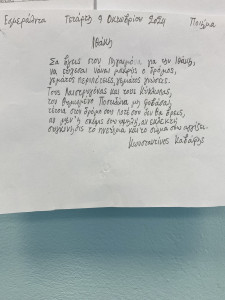 Σμαράλντα Τετάρτη 9 Οκτωβρίου 2024 Ποίημα
Ιθάκη
Σα βγεις στον πηγαιμό για την Ιθάκη,
να εύχεσαι νάναι μακρύς ο δρόμος,
γεμάτος περιπέτειες, γεμάτος γνώσεις.
Τους Λαιστρυγόνας και τους Κύκλωπας,
τον θυμωμένο Ποσειδώνα μη φοβάσαι,
τέτοια στον δρόμο σου ποτέ σου δεν θα βρεις,
αν μέν' η σκέψις σου υψηλή, αν εκλεκτή
συγκίνησις το πνεύμα και το σώμα σου αγγίζει.
Κωνσταντίνος Καβάφης